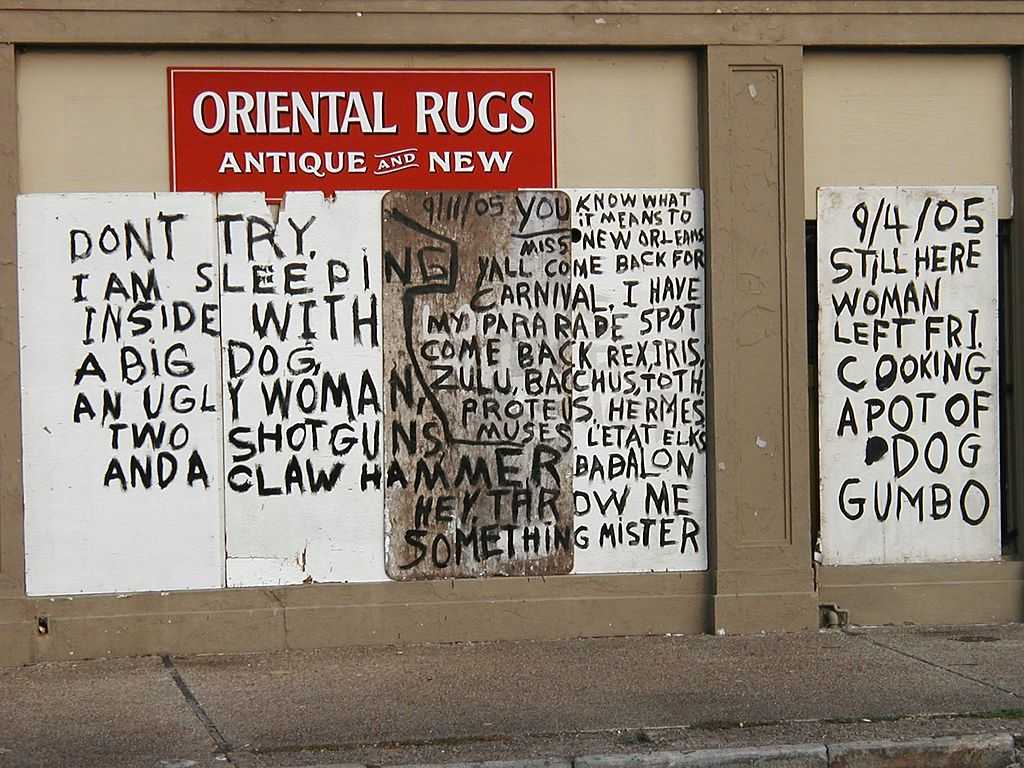 ORIENTAL RUGS
ANTIQUE AND NEW
DONT TRY.
I AM SLEEPING
INSIDE WITH
A BIG DOG,
AN UGLY WOMAN,
TWO SHOTGUNS,
AND A CLAW HAMMER
9/11/05 YOU KNOW WHAT
IT MEANS TO
MISS NEW ORLEANS
YALL COME BACK FOR
CARNIVAL, I HAVE
MY PARARADE SPOT
COME BACK REX, IRIS,
ZULU, BACCHUS, TOTH,
PROTEUS, HERMES
MUSES, L'ETAT ELKS
BABALON
HEY, THROW ME
SOMETHING MISTER
9/4/05
STILL HERE
WOMAN
LEFT FRI.
COOKING
A POT OF
DOG
GUMBO